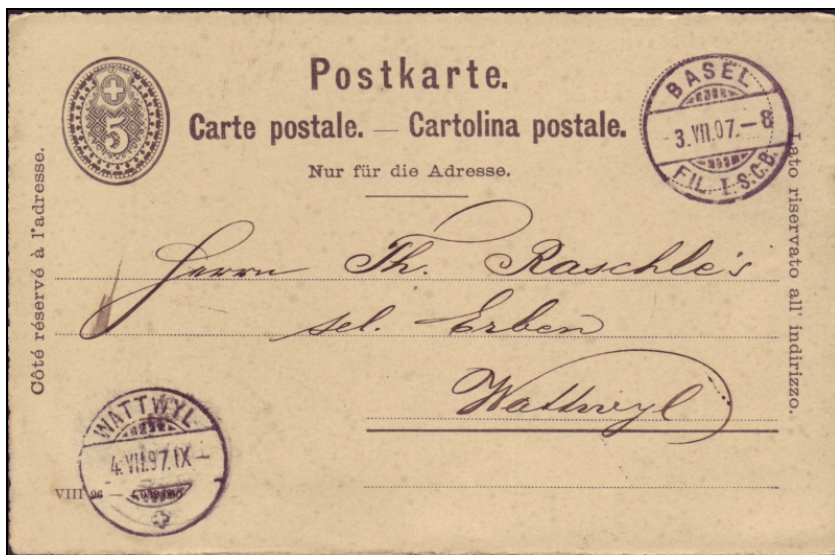 Postkarte.
Carte postale. — Cartolina postale.
Nur für die Adresse.
5
BASEL
3.VII.07.–8
FIL. I. S.C.B.
Côté réservé à l'adresse.
Lato riservato all' indirizzo.
Herrn Th. Raschle's
sel. Erben
Wattwyl
WATTWYL
4.VII.97.IX–
VIII 96 —